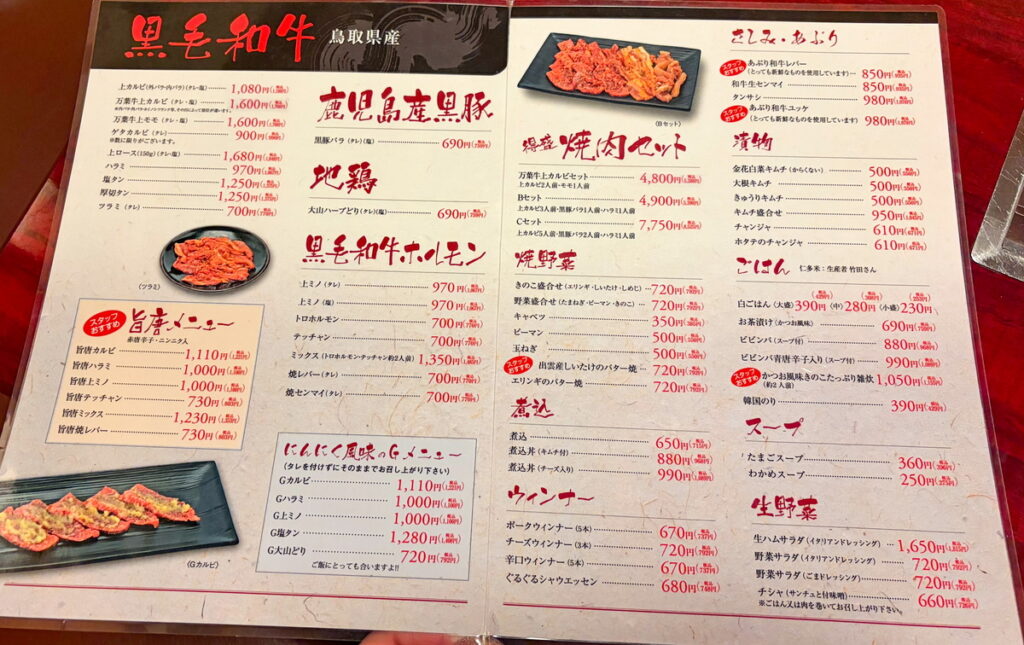 黒毛和牛 鳥取県産
上カルビ(外バラ・内バラ)(タレ・塩) 1,080円
万葉牛上カルビ (タレ・塩) 1,600円
万葉牛上モモ (タレ・塩) 1,600円
ゲタカルビ (タレ) 900円
※数に限りがございます。
上ロース(150g)(タレ・塩) 1,680円
ハラミ 970円
塩タン 1,250円
厚切タン 1,250円
ツラミ (タレ) 700円
(ツラミ)
スタッフおすすめ
旨唐メニュー
赤唐辛子・ニンニク入
旨唐カルビ 1,110円
旨唐ハラミ 1,000円
旨唐上ミノ 1,000円
旨唐テッチャン 730円
旨唐ミックス 1,230円
旨唐焼レバー 730円
(Gカルビ)
鹿児島産黒豚
黒豚バラ (タレ)(塩) 690円
地鶏
大山ハーブどり(タレ)(塩) 690円
黒毛和牛ホルモン
上ミノ (タレ) 970円
上ミノ (塩) 970円
トロホルモン 700円
テッチャン 700円
ミックス (トロホルモン・テッチャン約2人前) 1,350円
焼レバー (タレ) 700円
焼センマイ(タレ) 700円
にんにく風味のGメニュー
(タレを付けずにそのままでお召し上がり下さい)
Gカルビ 1,110円
Gハラミ 1,000円
G上ミノ 1,000円
G塩タン 1,280円
G大山どり 720円
ご飯にとっても合いますよ!!
(Bセット)
得盛 焼肉セット
万葉牛上カルビセット 4,800円
上カルビ2人前・モモ1人前
Bセット 4,900円
上カルビ3人前・黒豚バラ1人前・ハラミ1人前
Cセット 7,750円
上カルビ5人前・黒豚バラ2人前・ハラミ1人前
焼野菜
きのこ盛合せ(エリンギ・しいたけ・しめじ) 720円
野菜盛合せ(たまねぎ・ピーマン・きのこ) 720円
キャベツ 350円
ピーマン 500円
玉ねぎ 500円
スタッフおすすめ 出雲産しいたけのバター焼 720円
エリンギのバター焼 720円
煮込
煮込 650円(715円)
煮込丼(キムチ付) 880円(968円)
煮込丼(チーズ入り) 990円
ウィンナー
ポークウィンナー(5本) 670円(737円)
チーズウィンナー(3本) 720円(792円)
辛口ウィンナー(5本) 670円(737円)
ぐるぐるシャウエッセン 680円(748円)
さしみ・あぶり
スタッフおすすめ あぶり和牛レバー
(とっても新鮮なものを使用しています) 850円
和牛生センマイ 850円
タンサシ 980円
スタッフおすすめ あぶり和牛ユッケ
(とっても新鮮なものを使用しています) 980円
漬物
金花白菜キムチ(からくない) 500円
大根キムチ 500円
きゅうりキムチ 500円
キムチ盛合せ 950円
チャンジャ 610円
ホタテのチャンジャ 610円
ごはん 仁多米:生産者 竹田さん
白ごはん(大盛)390円(中)280円(小盛)230円
お茶漬け(かつお風味) 690円
ビビンバ(スープ付) 880円
ビビンバ青唐辛子入り(スープ付) 990円
スタッフおすすめ かつお風味きのこたっぷり雑炊 1,050円
(約2人前)
韓国のり 390円
スープ
たまごスープ 360円
わかめスープ 250円
生野菜
生ハムサラダ(イタリアンドレッシング) 1,650円
野菜サラダ(イタリアンドレッシング) 720円
野菜サラダ(ごまドレッシング) 720円
チシャ(サンチュと付味噌) 660円
※ごはん又は肉を巻いてお召し上がり下さい。